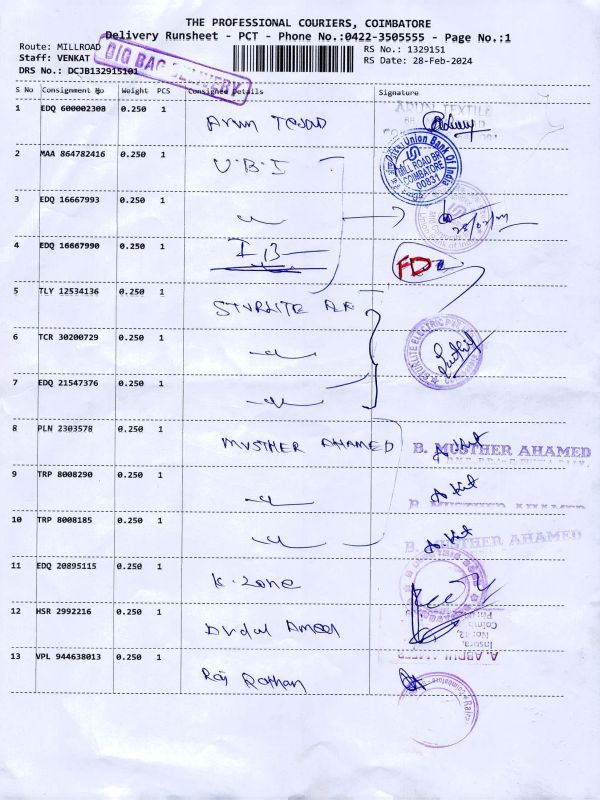 THE PROFESSIONAL COURIERS, COIMBATORE
Delivery Runsheet - PCT - Phone No.:0422-3505555 - Page No.:1
Route: MILLROAD
RS No.: 1329151
Staff: VENKAT
RS Date: 28-Feb-2024
DRS No.: DCJB132915101
BIG BAG DELIVERY
S No Consignment No Weight PCS Consigned Details Signature
1 EDQ 600002308 0.250 1
ARUN TEXTILE
2 MAA 864782416 0.250 1 U.B.I
Union Bank Of India
MILL ROAD BR.
COIMBATORE
00831
3 EDQ 16667993 0.250 1
4 EDQ 16667990 0.250 1 I B FD
5 TLY 12534136 0.250 1
6 TCR 30200729 0.250 1
7 EDQ 21547376 0.250 1
8 PLN 2303578 0.250 1 MUSTHER AHAMED
B. MUSTHER AHAMED
9 TRP 8008290 0.250 1
B. MUSTHER AHAMED
10 TRP 8008185 0.250 1
B. MUSTHER AHAMED
11 EDQ 20895115 0.250 1 K. Zone
12 HSR 2992216 0.250 1
13 VPL 944638013 0.250 1